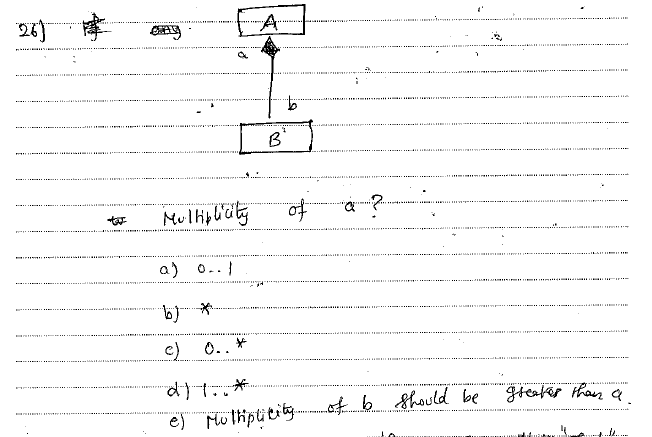 26)
A
a
b
B
Multiplicity of a ?
a) 0..1
b) *
c) 0..*
d) 1..*
e) Multiplicity of b should be greater than a.